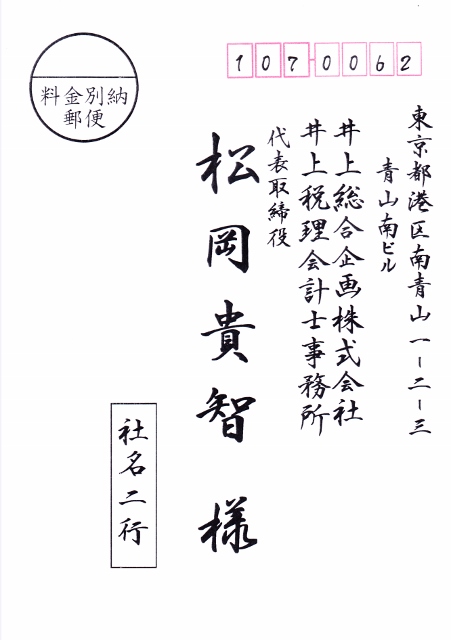 1070062
料金別納
郵便
東京都港区南青山一-二-三
青山南ビル
井上総合企画株式会社
井上税理会計士事務所
代表取締役
松岡貴智様
社名二行